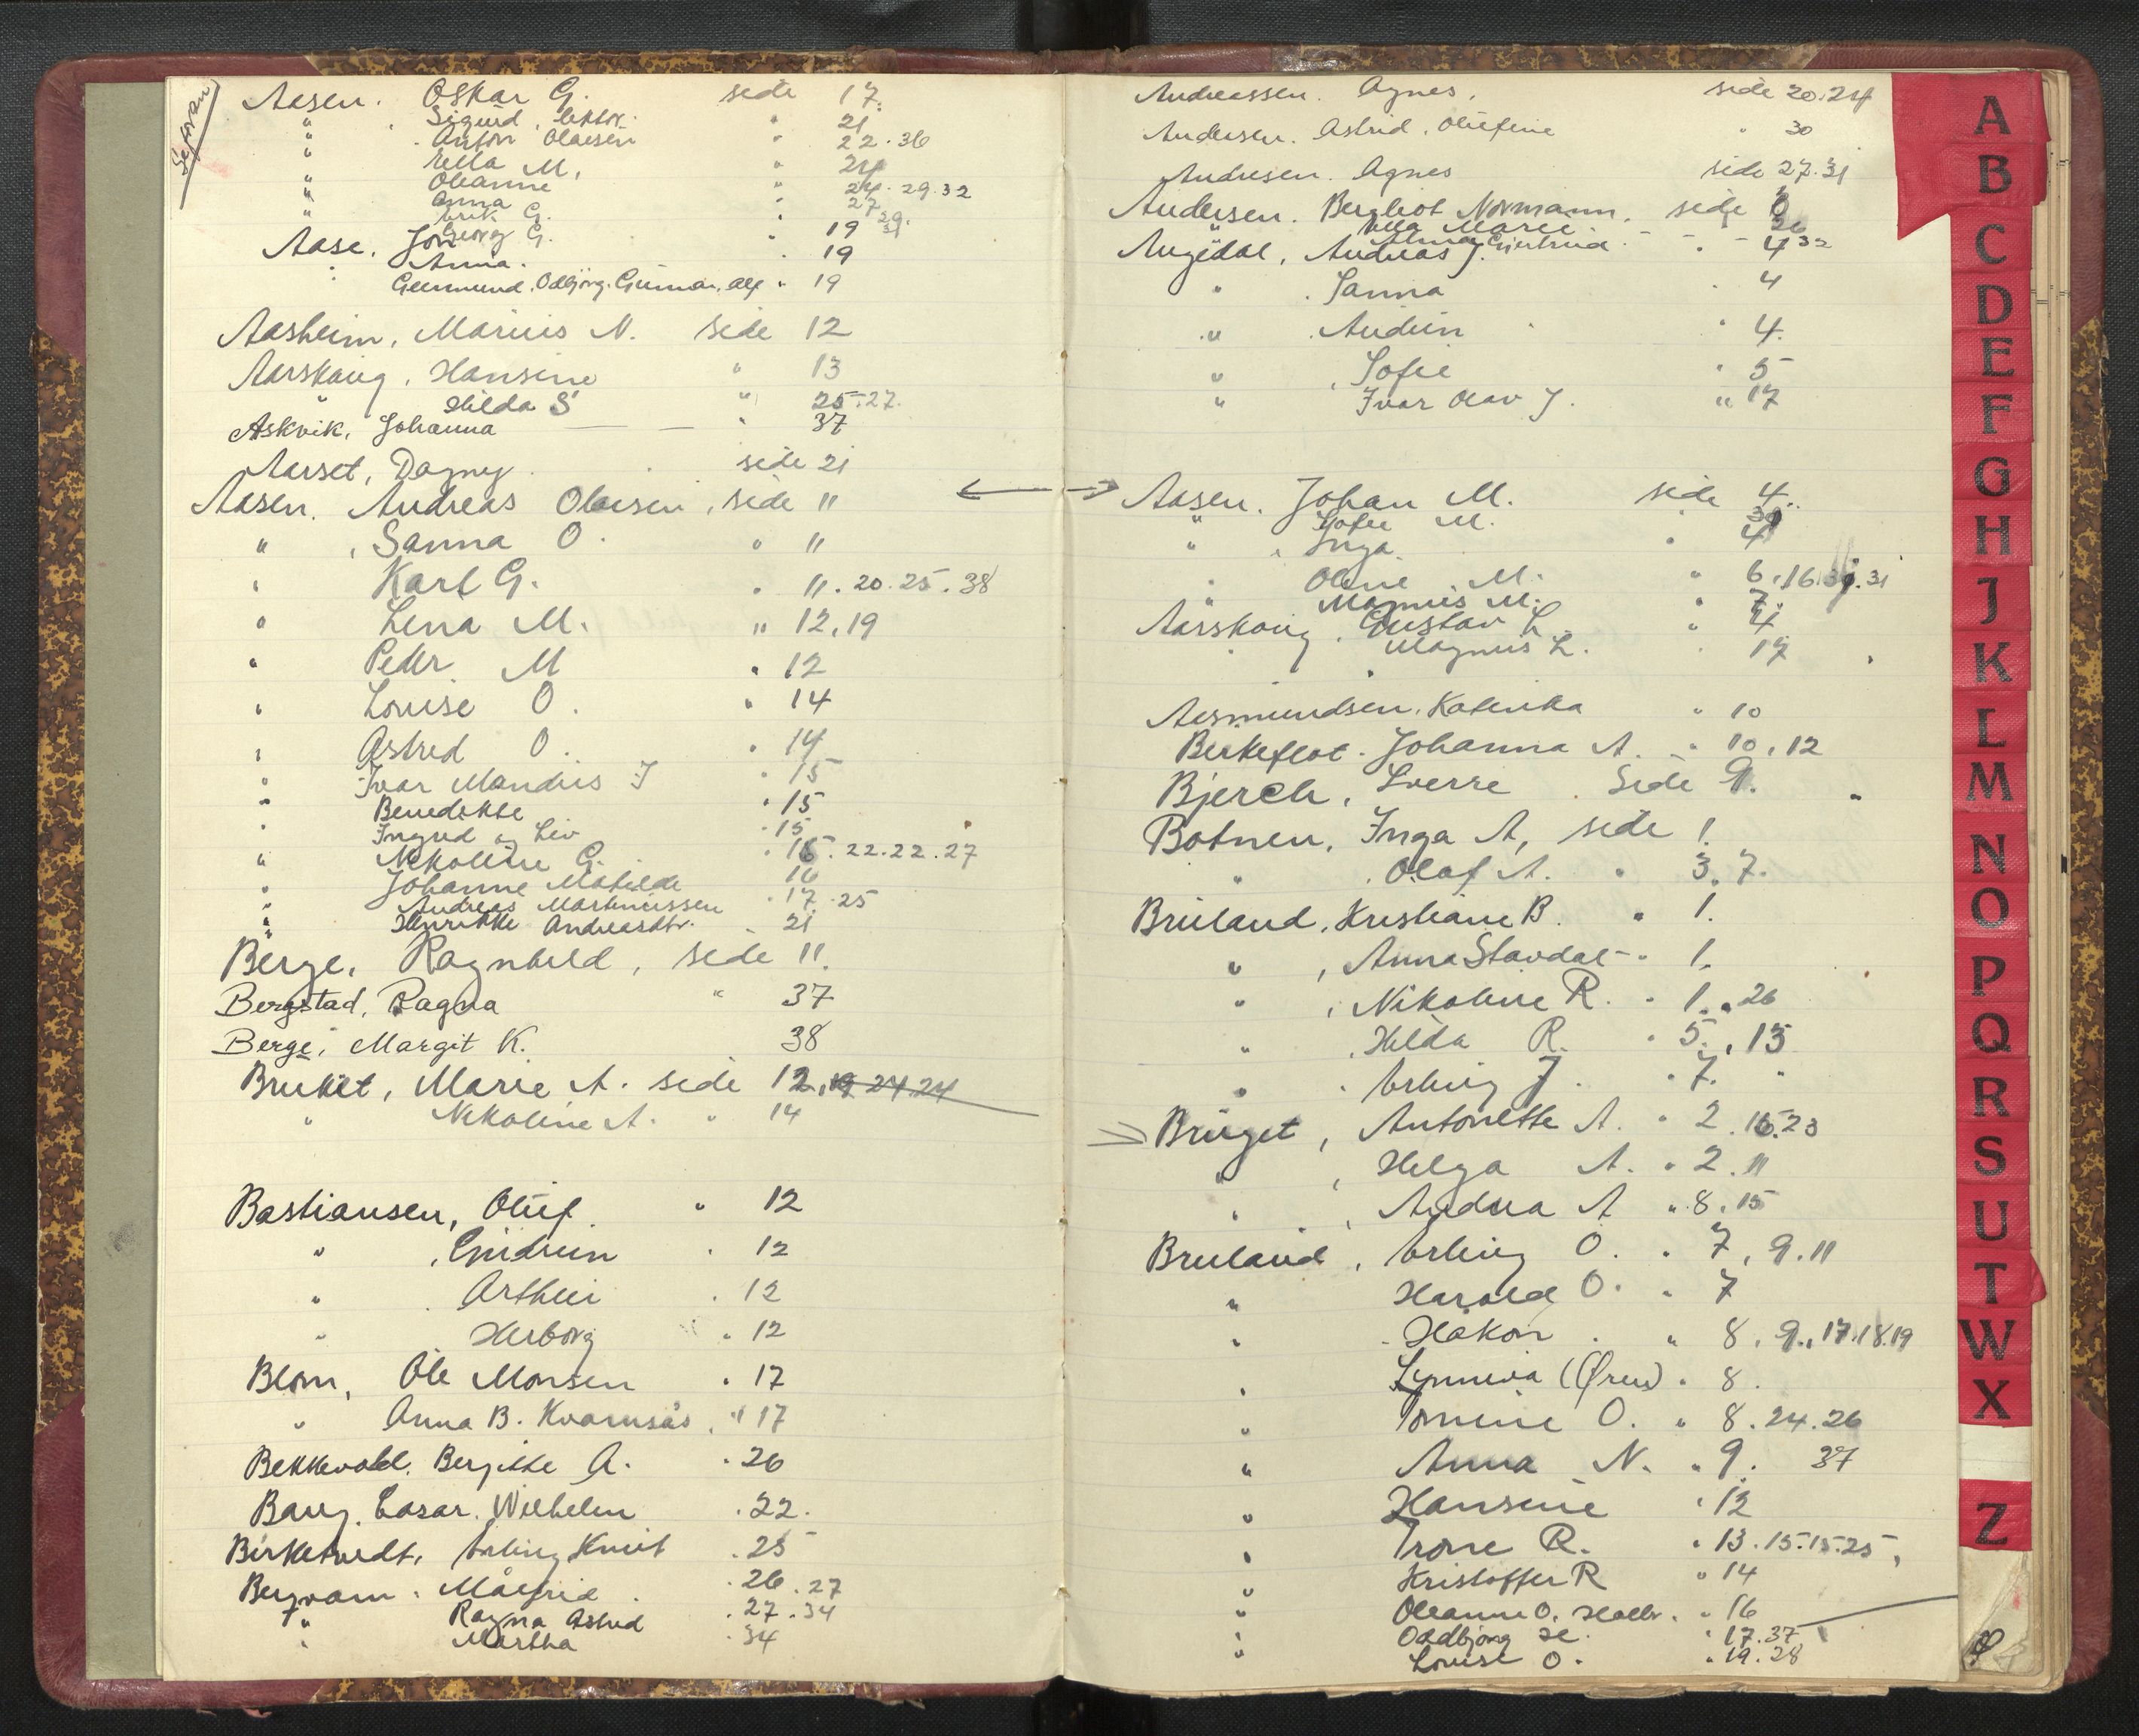 Aasen. Oskar G. side 17.
" Sigurd, lektor. " 21
" Anton Olaesen " 22.36
" Ella M. " 24
" Oleanne " 24.29.32
" Anna 27
" Erik G. " 29.
Georg G. 31
Aase, Jon " 19
Anna. " 19
" Gunnvor, Alf " 19
Aasheim, Marius N. side 12
Aarskoug, Hansine " 13
" Hilda S " 25.27.
Askvik, Johanna — — " 37
Aarset, Dagny. side 21
Aasen. Andreas Olaesen, side 11
" , Sanna O. " 11
" Karl G. " 11.20.25.38
" Lena M. " 12,19
" Peder M " 12
" Louise O. " 14
" Astrid O. " 14
" Ivar Mandius J " 15
" Benedikte " 15
" Ingrid og Liv " 15
" Nikoline G. " 16.22.22.27
" Johanne Matilde 16
" Andreas Martinussen " 17.25
" Henrikke Andreasdtr. " 21
Berge, Ragnhild, side 11.
Bergstad, Ragna " 37
Berge, Margit K. 38
Bruket, Marie A. side 12,19 24.24
" Nikoline A. " 14
Bastiansen, Oluf. " 12
" , Gudrun " 12
" Arthur " 12
" Herborg " 12
Blom, Ole Monsen " 17
" Anna B. Kvamsås, " 17
Bekkevold. Bergitte A. " 26
Baug. Wilhelm " 22.
Birketvedt, Erling Knut " 25
Bergvam. Målfrid. " 26.27
" Ragna Astrid " 27.34
" Martha " 34
Andreassen. Agnes, side 20.24
Andersen. Astrid, Olufine " 30
Andresen. Agnes side 27.31
Andersen. Bergliot Normann. side 8
" Ella Marie 26
Alma Gjertrud 32
Angedal, Andreas J. " 4
" . Sanna " 4
" . Audun " 4.
" , Sofie " 5
" Ivar Olav J. " 17
Aasen. Johan M. side 4.
" Sofie M.
" , Inga. " 4
" Oline M. " 6,16.31
" Magnus M. " 7.
Aarskoug. Gustav L. " 4
" Magnus L. " 17
Aasmundsen. Katinka " 10
Birkeflot. Johanna A. " 10,12
Bjerch, Sverre. Side 9.
Botnen, Inga A, side 1.
" . Olaf A. " 3.7.
Bruland, Kristiane B. " 1.
" , Anna Stavdal - " 1.
" , Nikoline R. " 1.,26
" . Hilda R. " 5.,13
" . Erling J. " 7.
Bruget, Antonette A. " 2.16.23
" , Helga A. " 2.11
" , Andrea A " 8.15
Bruland, Erling O. " 7,9.11
" Harald O. " 7
" Håkon. " 8.9.,17.18.19
" Synneva (Øren) " 8.
" Tomine O. " 8.24.26
" Anna N. " 9. 37
" Hansine " 12
" Trone R. " 13.15.15.25,
" Kristoffer R " 14
" Oleanne O. " 16
" Oddbjørg H. " 17.37
" Louise O. " 19.28
A
B
C
D
E
F
G
H
J
K
L
M
N
O
P
Q
R
S
U
T
W
X
Z